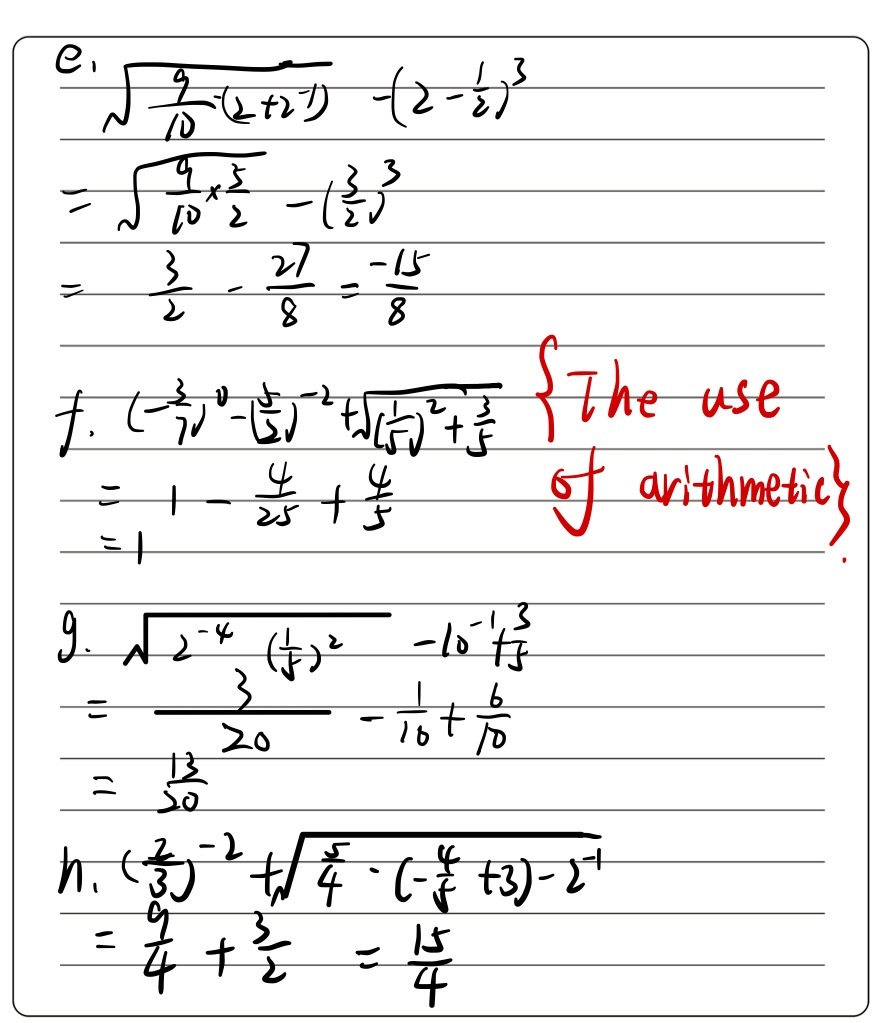 e. √(9/10·(2+2⁻¹)) -(2-1/2)³
= √(9/10×5/2) -(3/2)³
= 3/2 - 27/8 = -15/8
f. (-3/7)⁰-(5/2)⁻²+√((1/5)²+3/5
{The use
of arithmetic}.
= 1 - 4/25 + 4/5
= 1
g. √(2⁻⁴ (1/5)²) -10⁻¹+3/5
= 3/20 - 1/10 + 6/10
= 13/20
h. (2/3)⁻² +√(5/4·(-4/5+3)-2⁻¹)
= 9/4 + 3/2 = 15/4